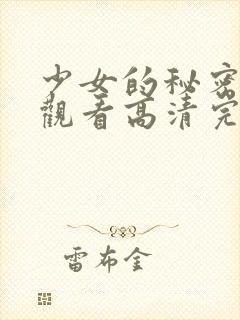 少女的秘密
觀看高清完
雷布金